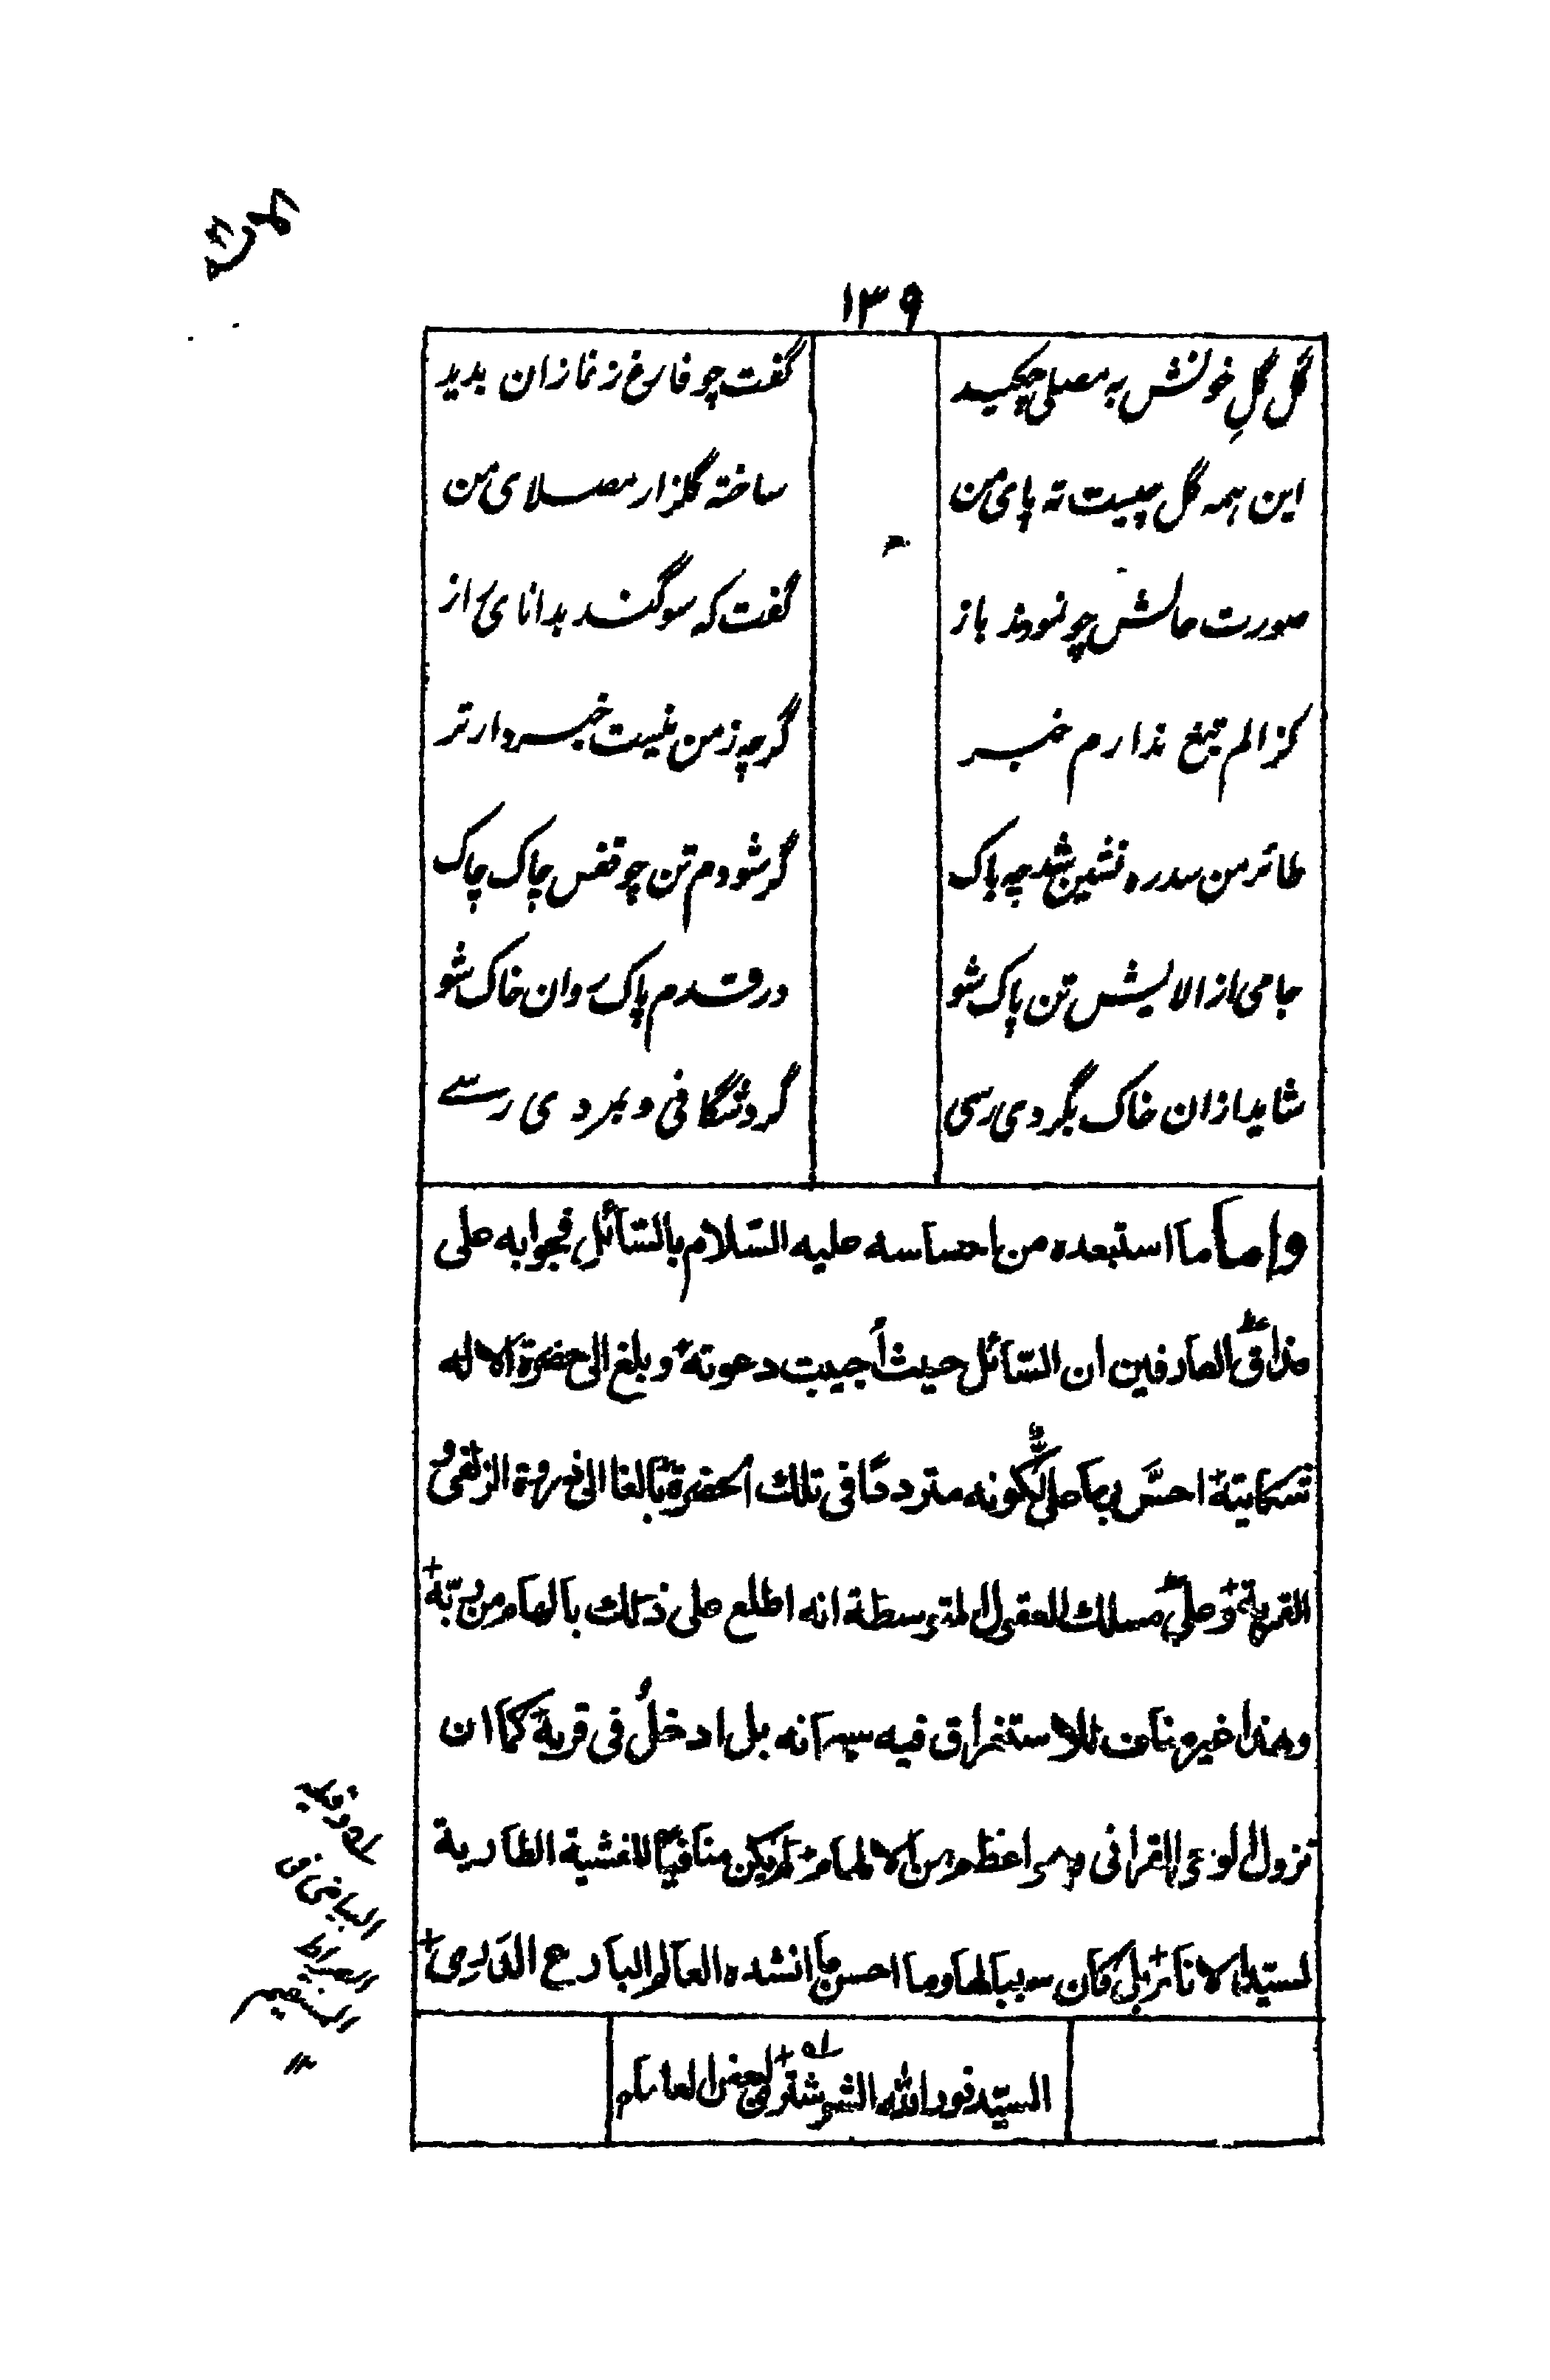 ۱۳۹
گل گلِ خونش بہ مصلی چکید گفت چو فارغ ز نمازان بدید
این ہمہ گل چیست تہ پای من ساختہ گلزار مصلای من
صورت حالش چو نمودند باز گفت کہ سوگند بدانای راز
کز الم تیغ ندارم خبر گرچہ ز من نیست خبردار تر
طائر من سدرہ نشین شد چہ باک گر شودم تن چو قفس چاک چاک
جامی از الایش تن پاک شو در قدم پاک روان خاک شو
شاید ازان خاک بگردی رسی گرد شگافی و بمردی رسے
واما ما استبعده من احساسه عليه السّلام بالسّائل فجوابه على
مذاق العارفين ان السّائل حيث أجيبت دعوته وبلغ الى حضرة الاله
شكايته احسّ بها علىّ لكونه مترددًا فى تلك الحضرة بالغا الى ذروة الزلفى و
القربة وعلى مسلك العقول المتوسطة انه اطلع على ذلك بالهام من ربّه
وهذا غير مناف للاستغراق فيه سبحانه بل ادخل فى قربة كما ان
نزول الوحى القرانى وهو اعظم من الالهام لم يكن منافيًا للغشية الطارية
لسيّد الانام بل كان سببا لها وما احسن ما انشده العالم البارع
السيّد نور الله الشوشترى لبعض
له وفيه
البياضى فى
الصراط
المستقيم